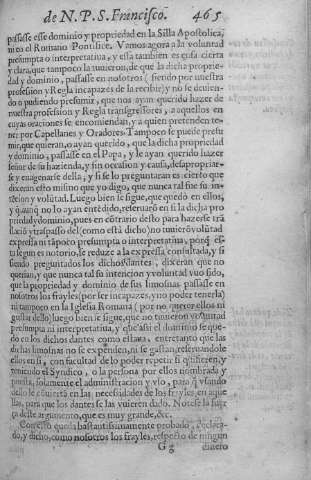 de N. P. S. Francisco. 465
passasse esse dominio y propriedad en la Silla Apostolica,
ni en el Romano Pontifice. Vamos agora a la voluntad
presumpta o interpretatiua, y essa tambien es cosa cierta
y clara, que tampoco la tuuieron, de que la dicha proprie-
dad y dominio, passasse en nosotros (siendo por nuestra
profession y Regla incapazes de la recibir) y no se deuien-
do o pudiendo presumir, que nos ayan querido hazer de
nuestra profession y Regla transgressores, a aquellos en
cuyas oraciones se encomiendan, y a quien pretenden te-
ner por Capellanes y Oradores. Tampoco se puede presu-
mir, que quieran, o ayan querido, que la dicha propriedad
y dominio, passasse en el Papa, y le ayan querido hazer
señor de su hazienda, y sin occasion y causa, desapropriar-
se y enagenarse della, y si se lo preguntaran es cierto que
dixeran esto mismo que yo digo, que nunca tal fue su in-
tencion y volũtad. Luego bien se sigue, que quedò en ellos,
y q̃ aunq̃ no lo ayan entẽdido, reseruarõ en si la dicha pro
priedad y dominio, pues en cõtrario desto para hazerse trã
slaciõ y traspasso del (como està dicho) no tuuierõ volũtad
expressa ni tãpoco presumpta o interpretatiua, porq̃ es-
ta segun es notorio, se reduze a la expressa consultada, y si
siendo preguntados los dichos dantes, dixeran que no
querian, y que nunca tal su intencion y voluntad vuo sido,
que la propriedad y dominio de sus limosnas passasse en
nosotros los frayles (por ser incapazes, y no poder tenerla)
ni tampoco en la Iglesia Romana (por no querer ellos ni
gustar dello) luego bien se sigue, que no tuuieron voluntad
presumpta ni interpretatiua, y que assi el dominio se que-
do en los dichos dantes como estaua, entretanto que las
dichas limosnas no se expenden, ni se gastan, reseruandole
ellos en si, con facultad de lo poder repetir si quisieren, y
teniendo el Syndico, o la persona por ellos nombrada y
puesta, solamente el administracion y vso, para q̃ vsando
dello se cõuierta en las necessidades de los frayles, en aque
llas, para que los dantes se las vuieren dado. Notese la fuer
ça deste argumento, que es muy grande, &c.
Con esto queda bastantissimamente probado, declara-
do, y dicho, como nosotros los frayles, respecto de ningun
Gg dinero